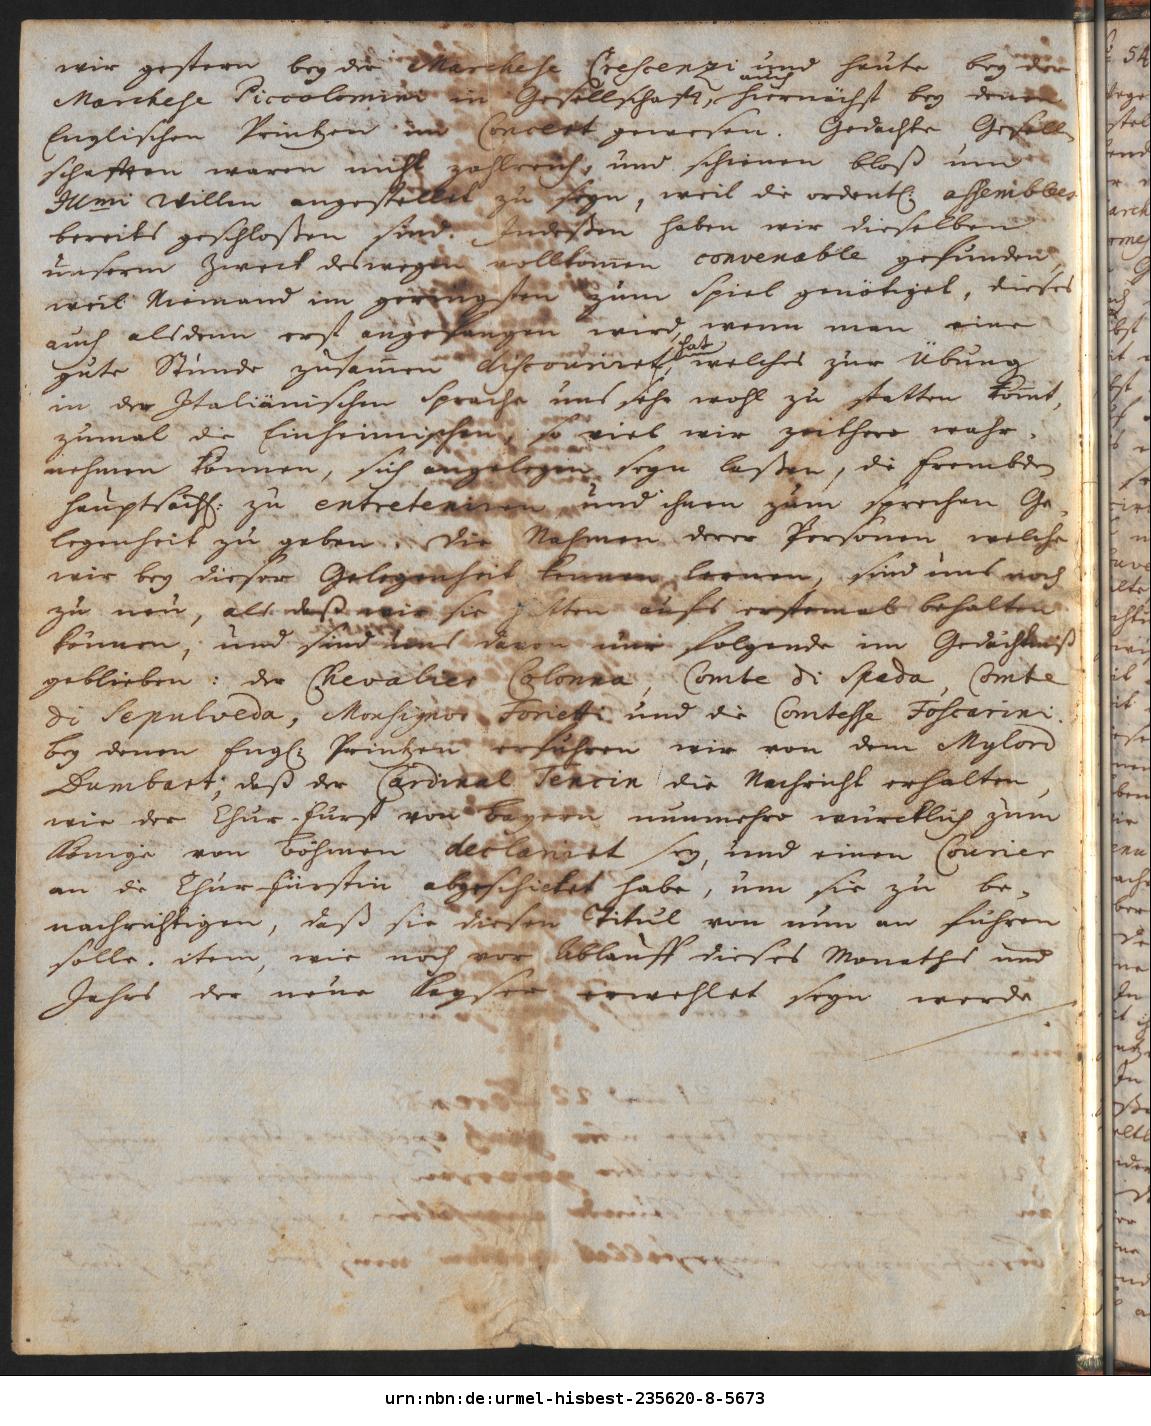 wir gestern bey der Marchese Crescenzi und heute bey der
Marchese Piccolomini in Gesellschafft, auch hiernächst bey denen
Englischen Printzen im Concert gewesen. Gedachte Gesell-
schafften waren nicht zahlreich, und schienen bloß um
Ill̅mi Willen angestellet zu seyn, weil die ordentl: assembleen
bereits geschloßen sind. Indeßen haben wir dieselben
unserm Zweck deswegen vollkom̅en convenable gefunden,
weil Niemand im geringsten zum Spiel genötiget, dieses
auch alsdenn erst angefangen wird, wenn man eine
gute Stunde zusam̅en discouriret hat, welches zur Übung
in der Italiänischen Sprache uns sehr wohl zu statten kom̅t,
zumal die Einheimischen, so viel wir zeithero wahr-
nehmen können, sich angelegen seyn laßen, die frembden
hauptsächl: zu entreteniren und ihnen zum sprechen Ge-
legenheit zu geben. Die Nahmen derer Personen welche
wir bey dieser Gelegenheit kennen lernen, sind uns noch
zu neu, als daß wir sie hätten aufs erstemal behalten
können, und sind uns davon nur folgende im Gedächtniß
geblieben: der Chevalier Colonna, Comte di Spada, Comte
di Sepulveda, Monsignor Forietti und die Comtesse Foscarini.
bey denen Engl: Printzen erfuhren wir von dem Mylord
Dumbart, daß der Cardinal Tencin die Nachricht erhalten,
wie der Chur-Fürst von Bayern nunmehro würcklich zum
Könige von Böhmen declariret sey, und einen Courier
an die Chur-Fürstin abgeschicket habe, um sie zu be-
nachrichtigen, daß sie diesen Titul von nun an führen
solle. item, wie noch vor Ablauff dieses Monaths und
Jahrs der neue Kayser erwehlet seyn werde.
urn:nbn:de:urmel-hisbest-235620-8-5673